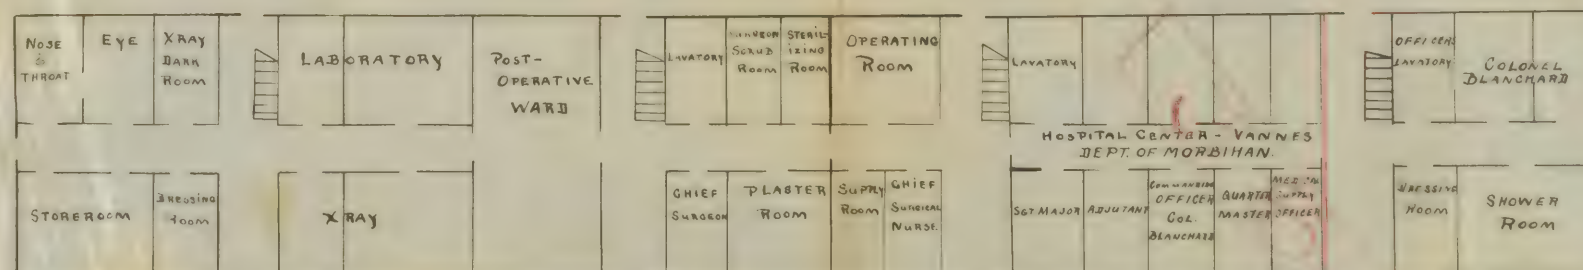 NOSE
&
THROAT
EYE
XRAY
DARK
ROOM
LABORATORY
POST-
OPERATIVE
WARD
LAVATORY
SURGEON
SCRUB
ROOM
STERIL-
IZING
ROOM
OPERATING
ROOM
LAVATORY
OFFICERS
LAVATORY
COLONEL
BLANCHARD
HOSPITAL CENTER - VANNES
DEPT. OF MORBIHAN.
STOREROOM
DRESSING
ROOM
XRAY
CHIEF
SURGEON
PLASTER
ROOM
SUPPLY
ROOM
CHIEF
SURGICAL
NURSE.
SGT MAJOR
ADJUTANT
COMMANDING
OFFICER
COL.
BLANCHARD
QUARTER
MASTER
MEDICAL
SUPPLY
OFFICER
DRESSING
ROOM
SHOWER
ROOM